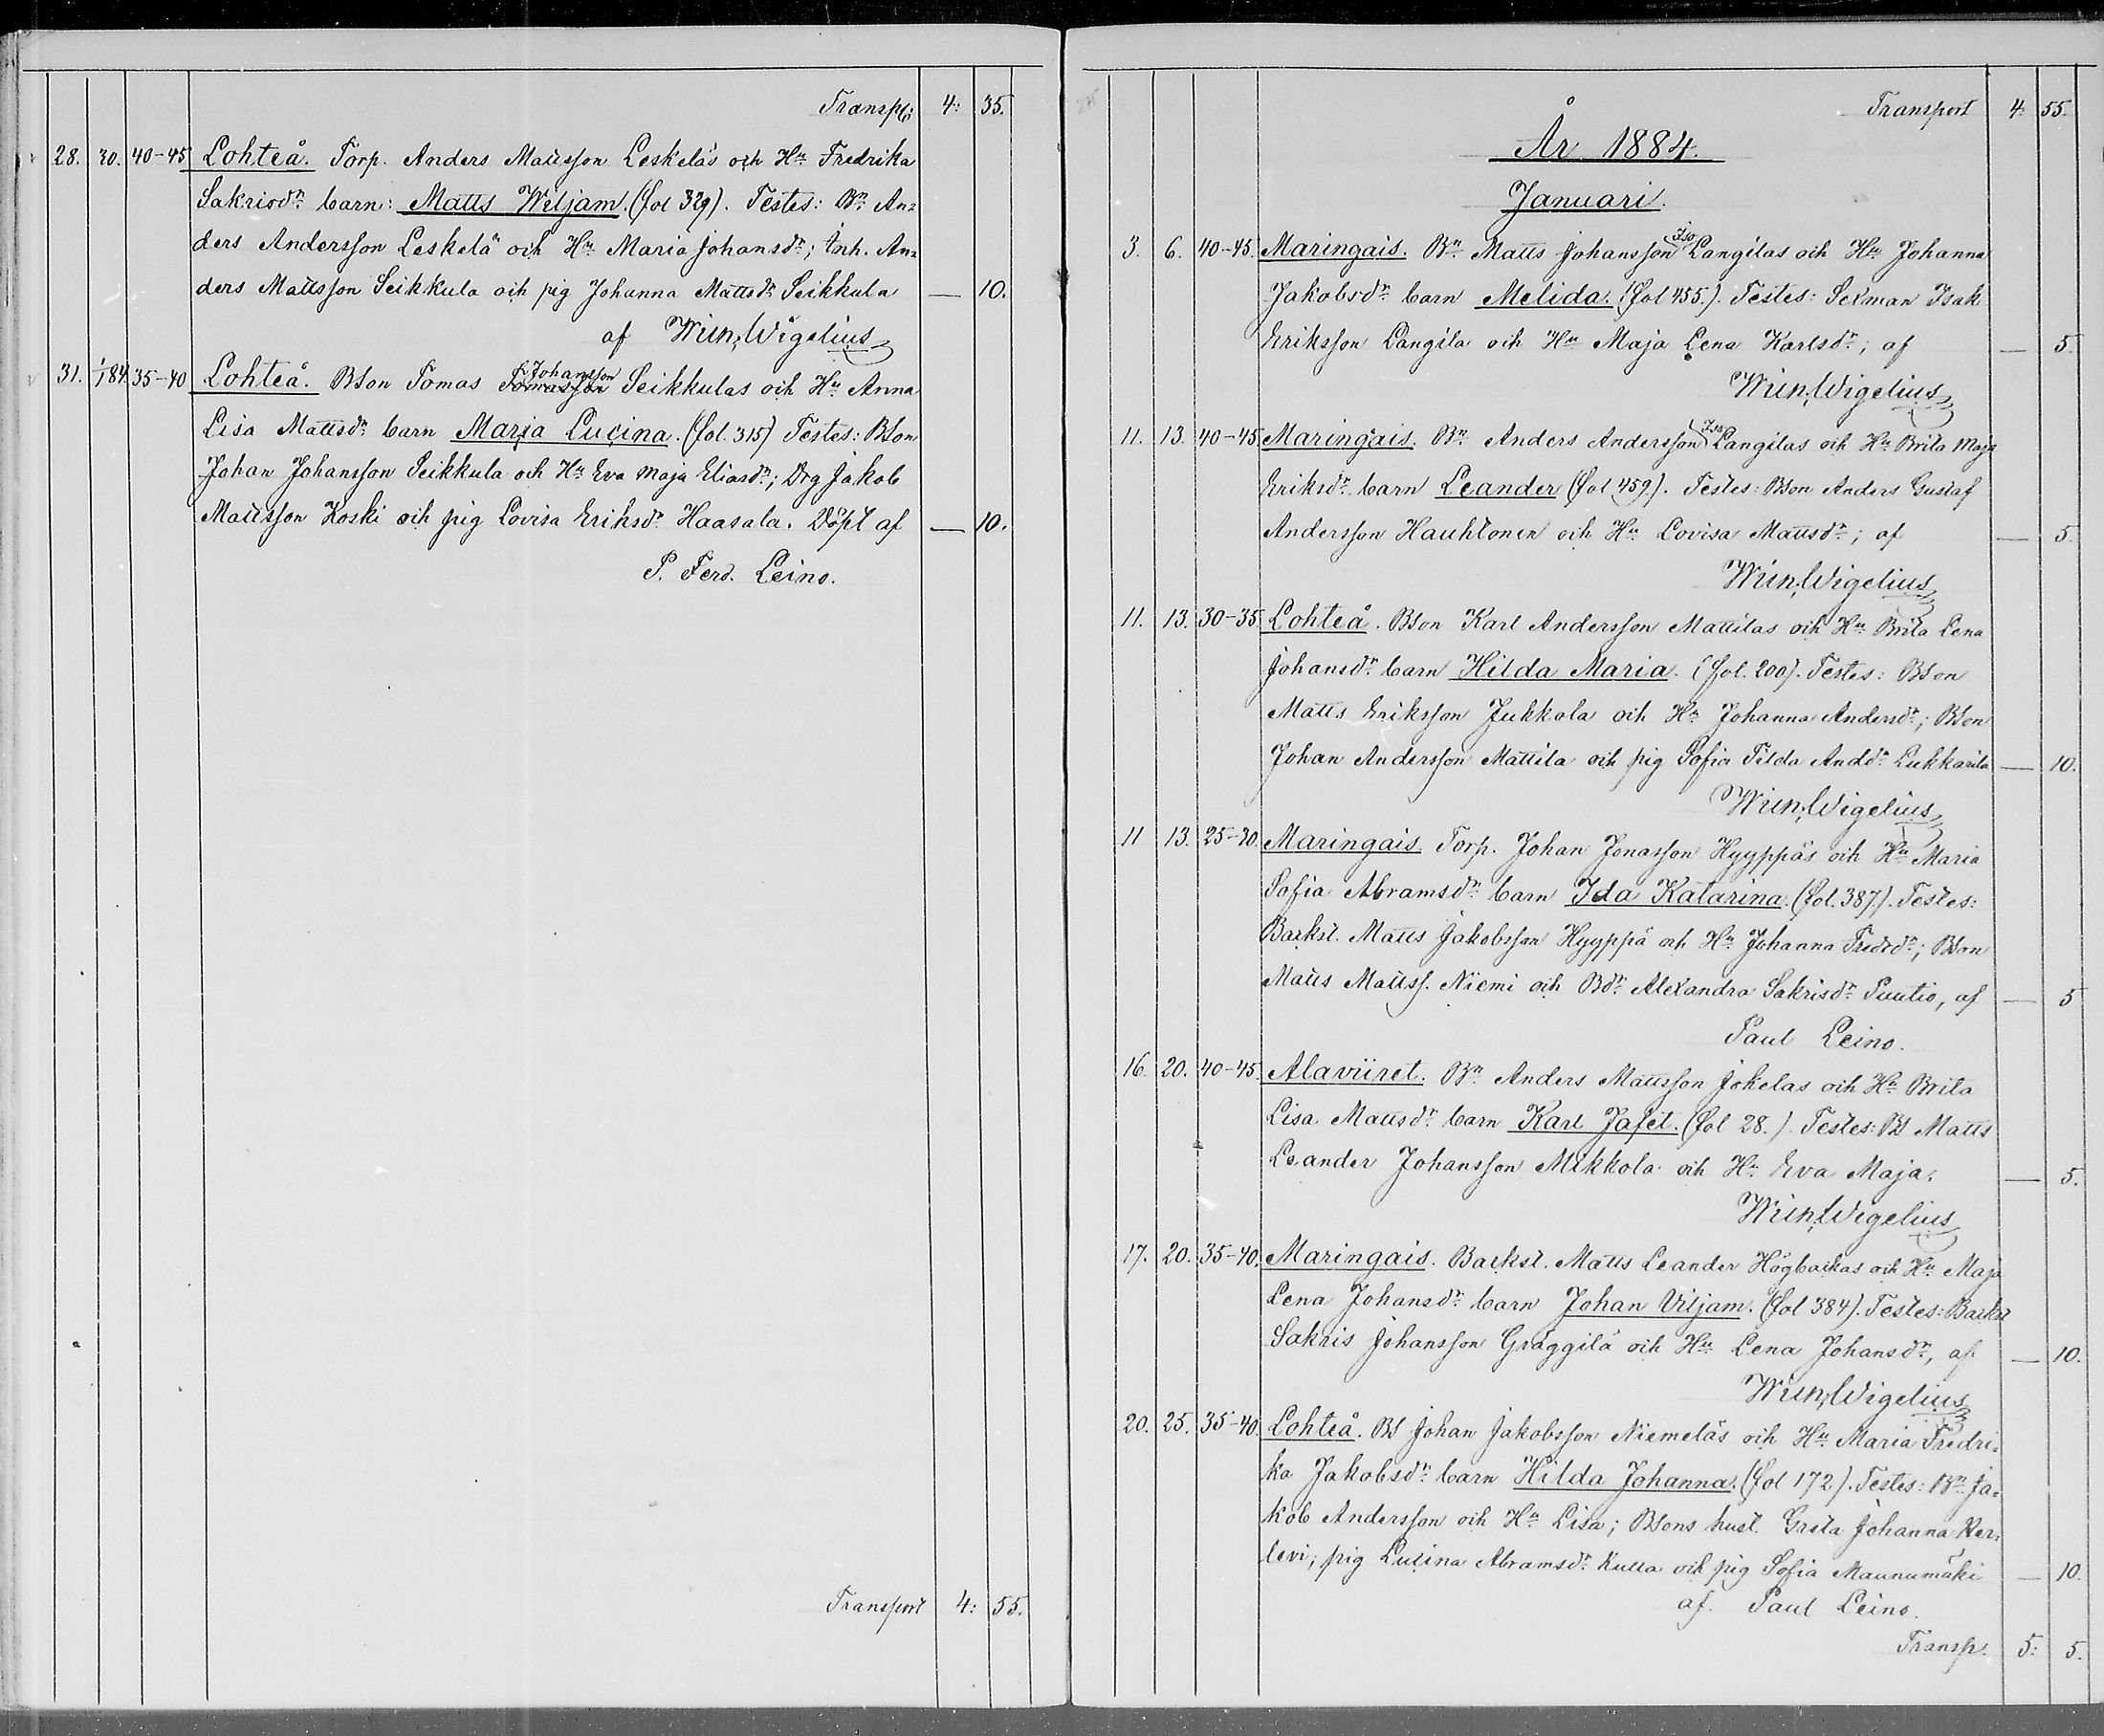 Transpt: 4: 35.
28. 30. 40-45 Lohteå. Torp. Anders Mattsson Leskeläs och Hu Fredrika
Sakrisdr barn: Matts Wiljam. (fol 329). Testes: Bn An-
ders Andersson Leskelä och Hu Maria Johansdr; Inh. An-
ders Mattsson Seikkula och pig Johanna Mattsdr Seikkula — 10.
af Wiln; Wigelius
31. 1/1 84. 35-40 Lohteå. BSon Tomas Tomasson Johansson Seikkulas och Hu Anna
Lisa Mattsdr barn Maria Lucina. (fol. 315) Testes: BSon
Johan Johansson Seikkula och Hu Eva Maja Eliasdr; Drg Jakob
Mattsson Koski och pig Lovisa Eriksdr Haasala. Döpt af — 10.
P. Ferd. Leino.
Transport 4: 55.
Transport 4: 55.
År 1884.
Januari.
3. 6. 40-45. Maringais. Bn Matts Johansson Iso Langilas och Hu Johanna
Jakobsdr barn Melida. (fol 455.). Testes: Sexman Isak
Eriksson Langila och Hu Maja Lena Karlsdr; af — 5.
Wiln; Wigelius
11. 13. 40-45 Maringais. Bn Anders Andersson Iso Langilas och Hu Brita Maja
Eriksdr barn Leander (fol 459). Testes: BSon Anders Gustaf
Andersson Hauhtonen och Hu Lovisa Mattsdr; af — 5.
Wiln; Wigelius
11. 13. 30-35. Lohteå. BSon Karl Andersson Mattilas och Hu Brita Lena
Johansdr barn Hilda Maria. (fol. 200). Testes: BSon
Matts Eriksson Jukkola och Hu Johanna Andersdr; BSon
Johan Andersson Mattila och pig Sofia Tilda Anddr Lukkarila — 10.
Wiln; Wigelius
11 13. 25-30. Maringais. Torp. Johan Jonasson Hyyppäs och Hu Maria
Sofia Abramsdr barn Ida Katarina. (fol. 387.). Testes:
Backst. Matts Jakobsson Hyyppä och Hu Johanna Fredrdr; BSon
Matts Mattss. Niemi och Bdr Alexandra Sakrisdr Puutio, af — 5
Paul Leino.
16. 20. 40-45. Alaviiret. Bn Anders Mattsson Jokelas och Hu Brita
Lisa Mattsdr barn Karl Jafet. (fol 28.). Testes: BS Matts
Leander Johansson Mikkola och Hu Eva Maja. — 5.
Wiln; Wigelius
17. 20. 35-40. Maringais. Backst. Matts Leander Högbackas och Hu Maja
Lena Johansdr barn Johan Viljam. (fol 384). Testes: Backst
Sakris Johansson Gräggilä och Hu Lena Johansdr, af — 10.
Wiln; Wigelius
20. 25. 35-40. Lohteå. BS Johan Jakobsson Niemeläs och Hu Maria Fredri-
ka Jakobsdr barn Hilda Johanna. (fol 172). Testes: Bn Ja-
kob Andersson och Hu Lisa; BSons hust. Greta Johanna Ker-
levi; pig Lucina Abramsdr Kulla och pig Sofia Maunumäki — 10.
af. Paul Leino.
Transp. 5: 5.